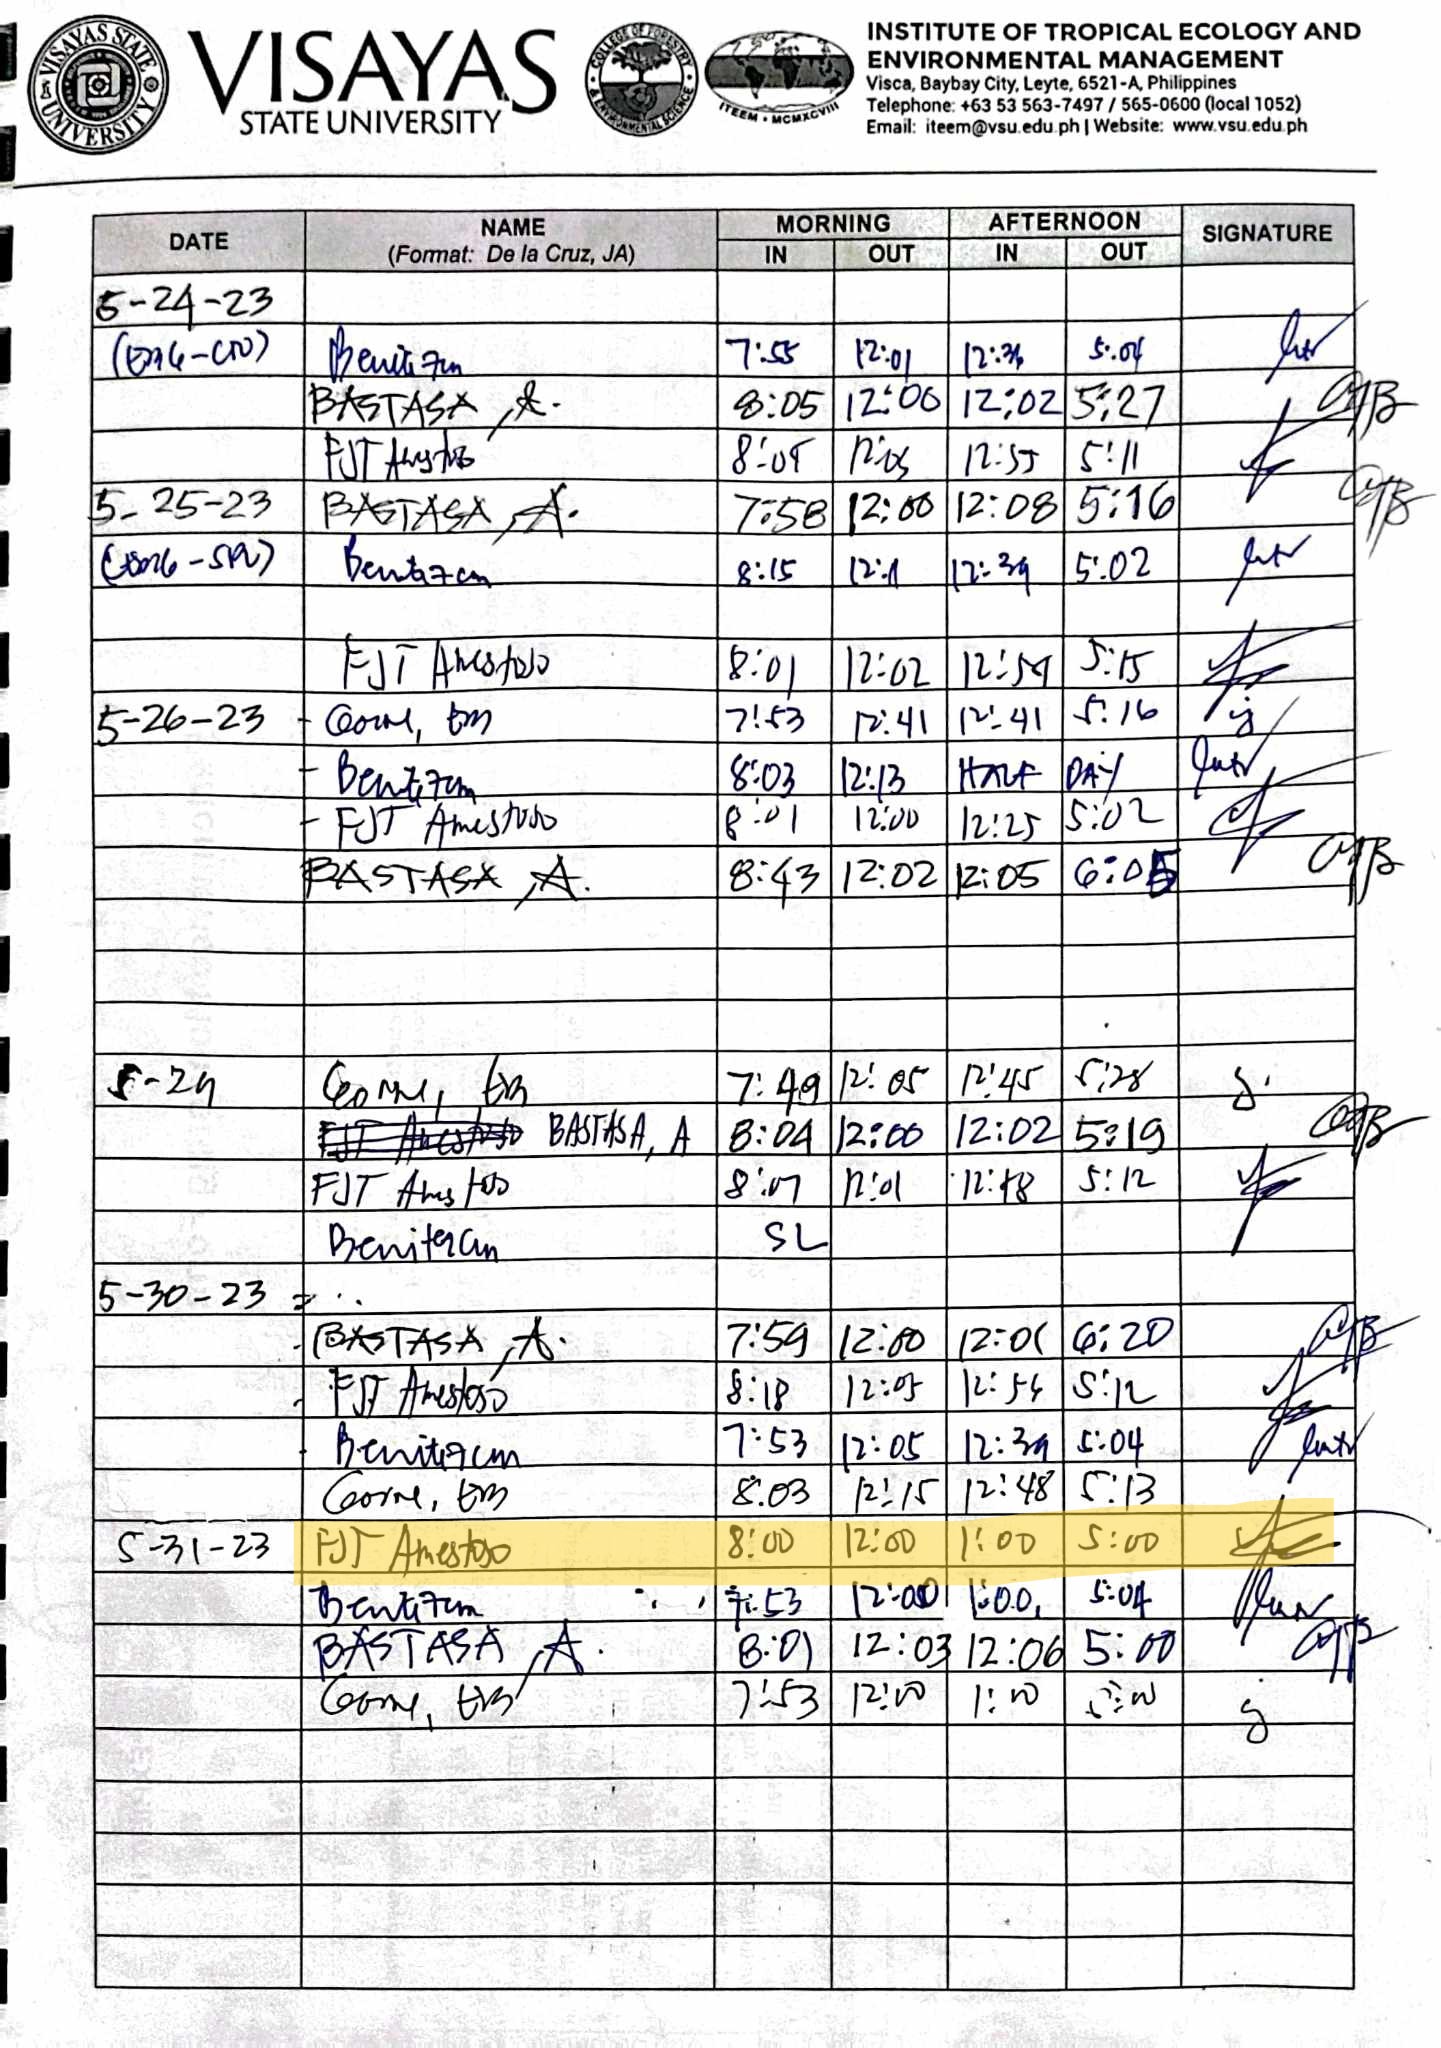 VISAYAS STATE UNIVERSITY
VISAYAS
STATE UNIVERSITY
COLLEGE OF FORESTRY & ENVIRONMENTAL SCIENCE
ITEEM • MCMXCVIII
INSTITUTE OF TROPICAL ECOLOGY AND
ENVIRONMENTAL MANAGEMENT
Visca, Baybay City, Leyte, 6521-A, Philippines
Telephone: +63 53 563-7497 / 565-0600 (local 1052)
Email: iteem@vsu.edu.ph | Website: www.vsu.edu.ph
DATE NAME MORNING AFTERNOON SIGNATURE
(Format: De la Cruz, JA) IN OUT IN OUT
5-24-23
7:55 12:01 12:36 5:04
BASTASA, A. 8:05 12:00 12:02 5:27
FJT Amestoso 8:05 12:05 12:55 5:11
5-25-23 BASTASA, A. 7:58 12:00 12:08 5:16
8:15 12:11 12:39 5:02
FJT Amestoso 8:01 12:02 12:59 5:15
5-26-23 - 7:53 12:41 12:41 5:16
- 8:03 12:13 HALF DAY
- FJT Amestoso 8:01 12:00 12:25 5:02
BASTASA, A. 8:43 12:02 12:05 6:05
5-29 7:49 12:05 12:45 5:28
FJT Amestoso BASTASA, A 8:04 12:00 12:02 5:19
FJT Amestoso 8:07 12:01 12:48 5:12
SL
5-30-23
BASTASA, A. 7:59 12:00 12:01 6:20
FJT Amestoso 8:18 12:05 12:54 5:12
7:53 12:05 12:39 5:04
8:03 12:15 12:48 5:13
5-31-23 FJT Amestoso 8:00 12:00 1:00 5:00
7:53 12:00 1:00 5:04
BASTASA, A. 8:01 12:03 12:06 5:00
7:53 12:00 1:00 5:00